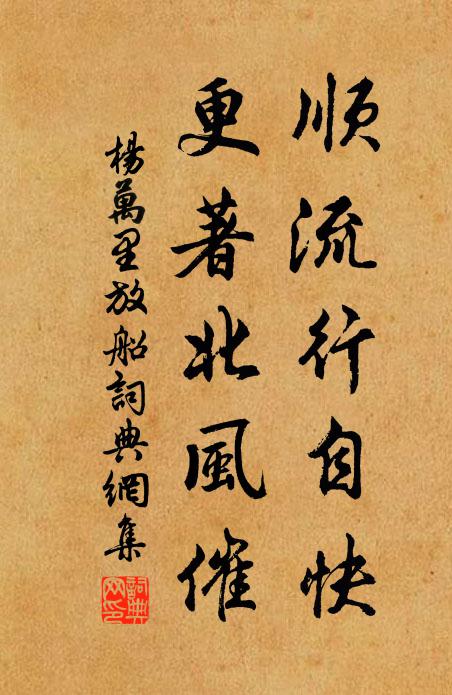 顺流行自快
更著北風催
楊萬里放船詞典網集
詞典网印